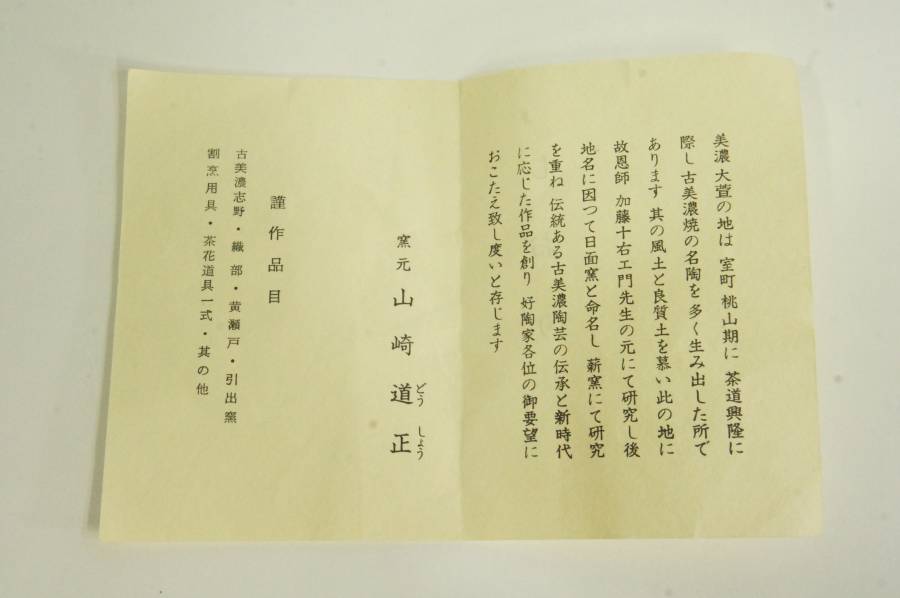 美濃 大萱の地は 室町 桃山期に 茶道興隆に
際し 古美濃焼の名陶を 多く生み出した所で
あります 其の風土と良質土を慕い此の地に
故恩師 加藤十右エ門先生の元にて研究し後
地名に因つて日面窯と命名し 薪窯にて研究
を重ね 伝統ある古美濃陶芸の伝承と新時代
に応じた作品を創り 好陶家各位の御要望に
おこたえ致し度いと存じます
窯元 山崎道正
どう しょう
謹作品目
古美濃志野・織部・黄瀬戸・引出窯
割烹用具・茶花道具一式・其の他